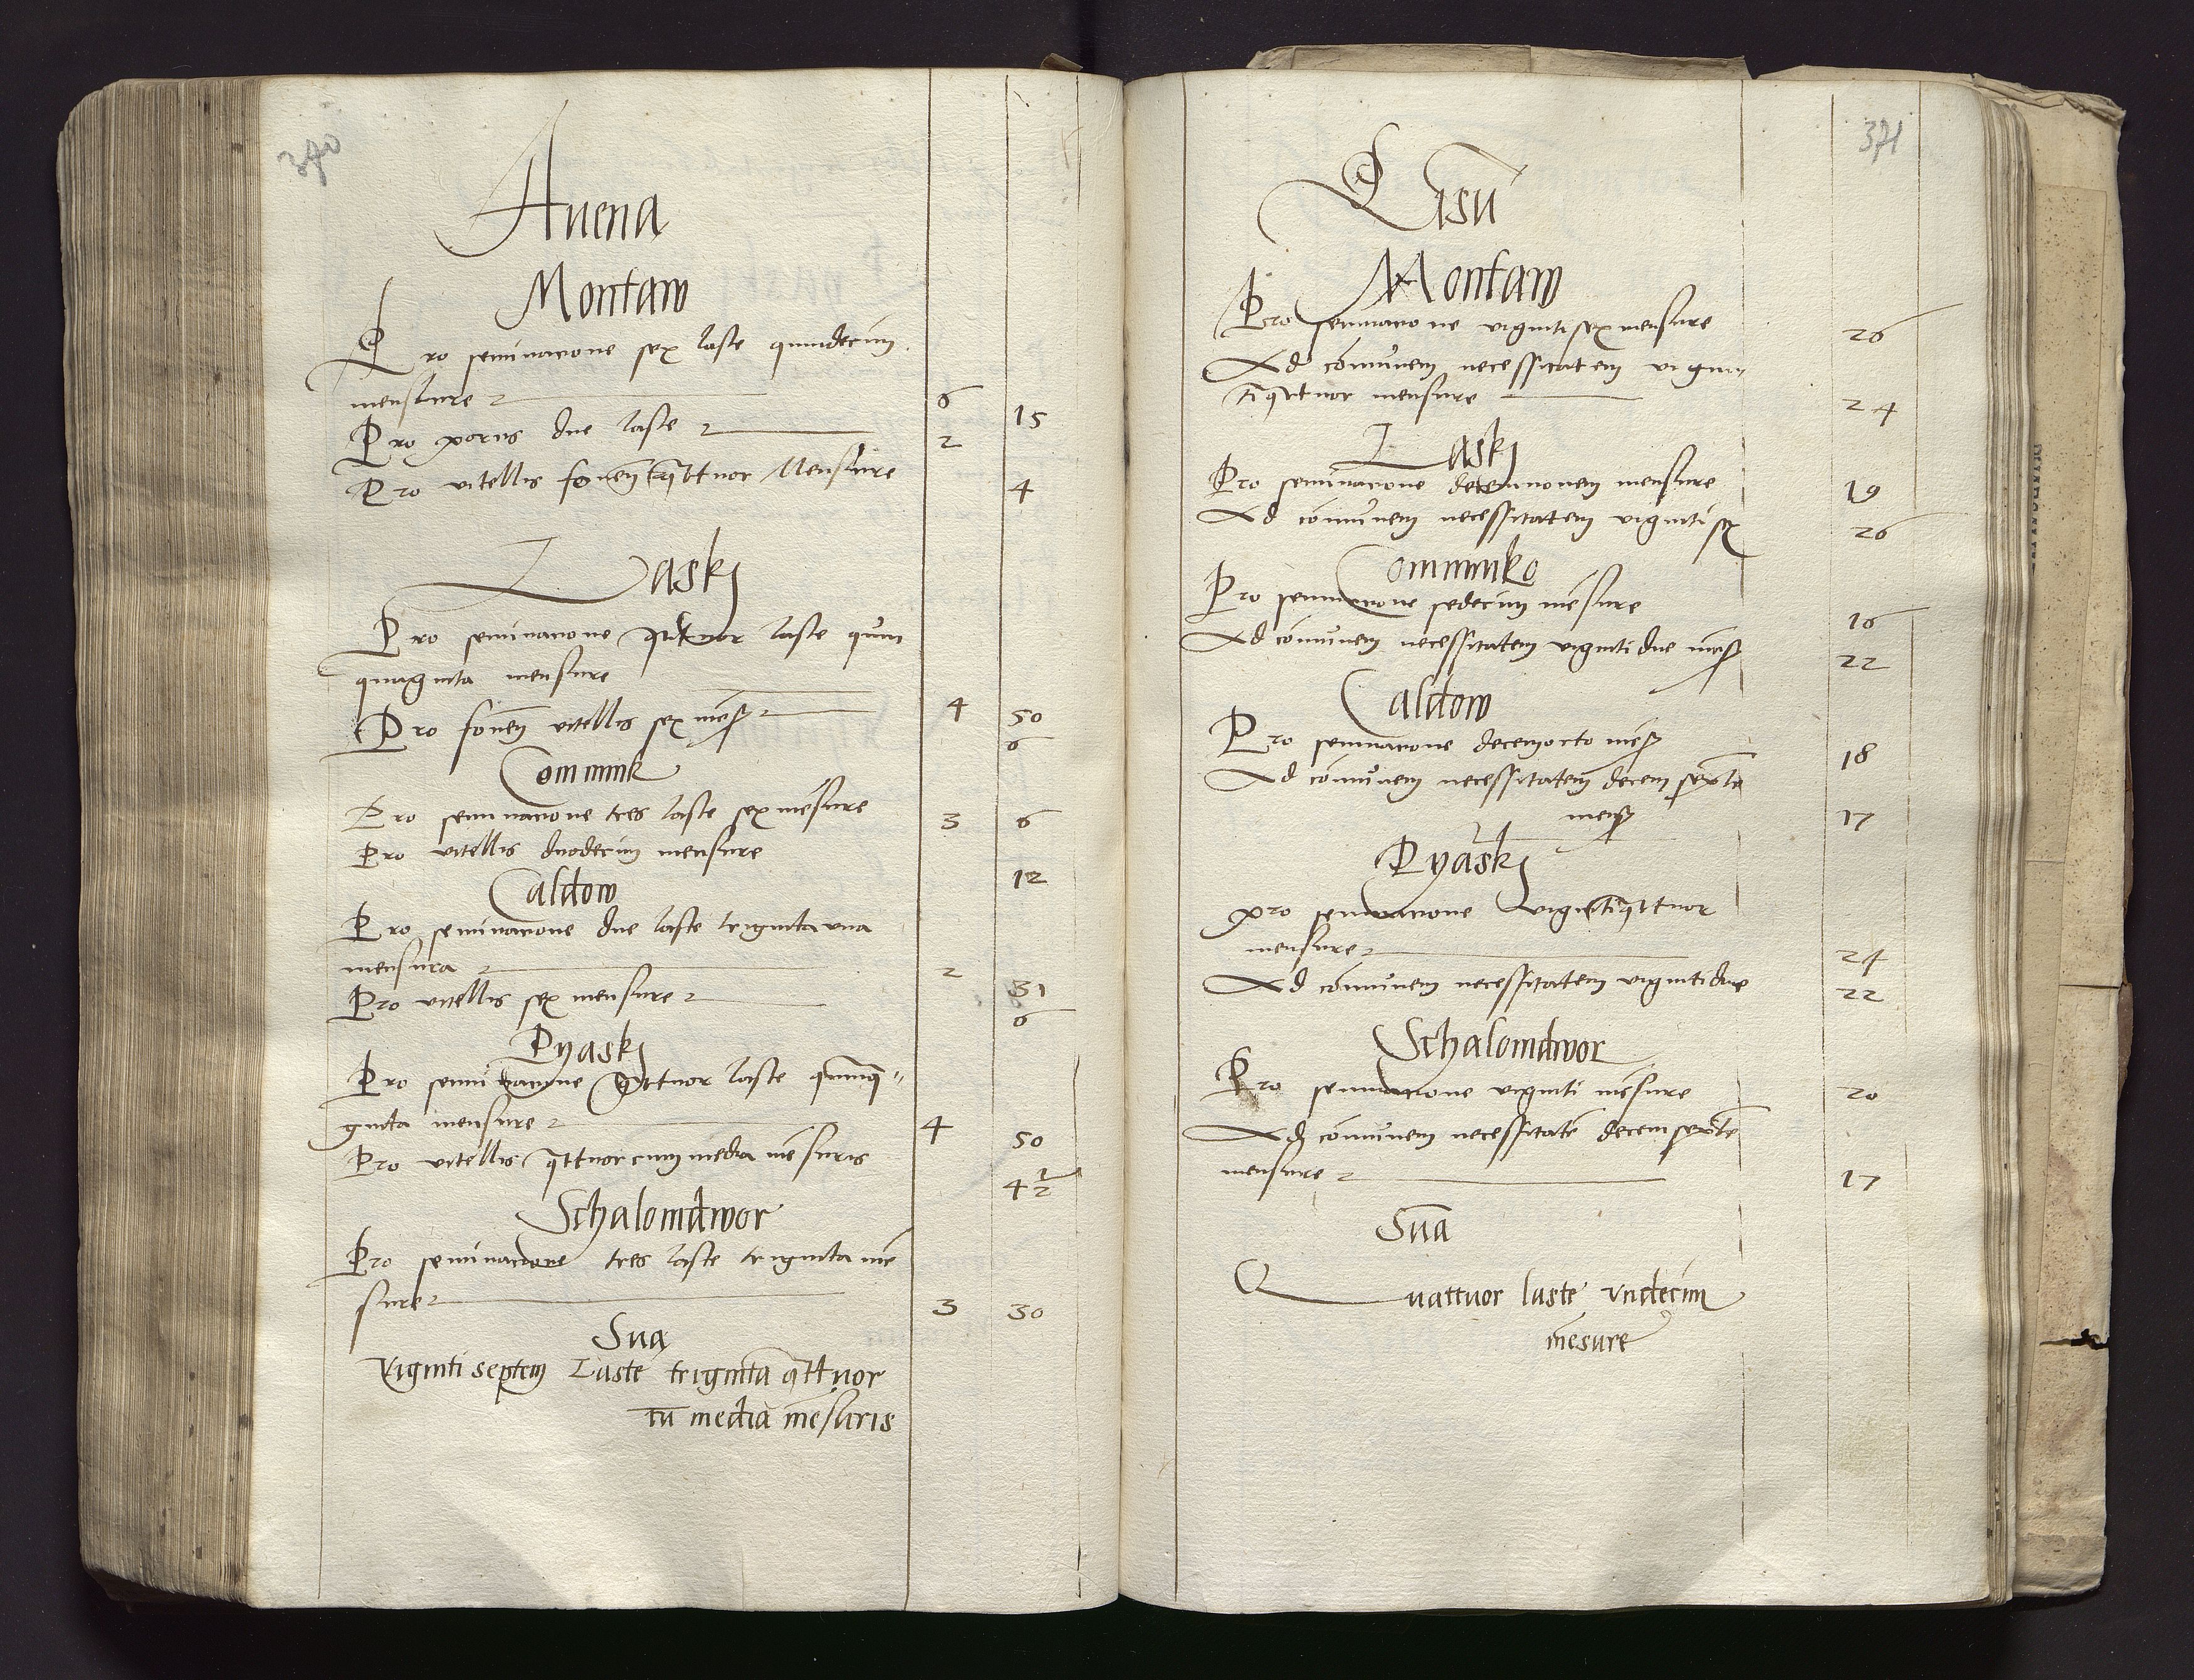 370
Auena
Montaw
Pro seminacione sex laste quindecim
mensure 6 15
Pro porcis due laste 2
Pro vitellis fouen qttuor Mensure 4
Laskj
Pro seminacione qttuor laste quin
quaginta mensure 4 50
Pro fouen vitellis sex mens 6
Comminik
Pro seminacione tres laste sex mensure 3 6
Pro vitellis duodecim mensure 12
Caldow
Pro seminacione due laste triginta vna
mensura 2 31
Pro vitellis sex mensure 6
Pyaskj
Pro seminacione qttuor laste quinqua
ginta mensure 4 50
Pro vitellis qttuor cum media mesuris 4 1/2
Schalomdwor
Pro seminacione tres laste triginta me
sure 3 30
Sua
Viginti septem Laste triginta qttuor
cu media mesuris
371
Pisu
Montaw
Pro seminacione viginti sex mensure 26
Ad comunem necessitatem vigin
ti qttuor mensure 24
Laskj
Pro seminacione decemnouem mensure 19
Ad comunem necessitatem viginti sex 26
Comminko
Pro seminacione sedecim mesure 16
Ad comunem necessitatem viginti due mens 22
Caldow
Pro seminacione decemocto mens 18
Ad comunem necessitatem decem septe
mens 17
Pyaskj
pro seminacione viginti qttuor
mensure 24
Ad comunem necessitatem viginti due 22
Schalomdwor
Pro seminacione viginti mesure 20
Ad comunem necessitate decem septe
mensure 17
Sua
Quattuor laste vndecim
mesure